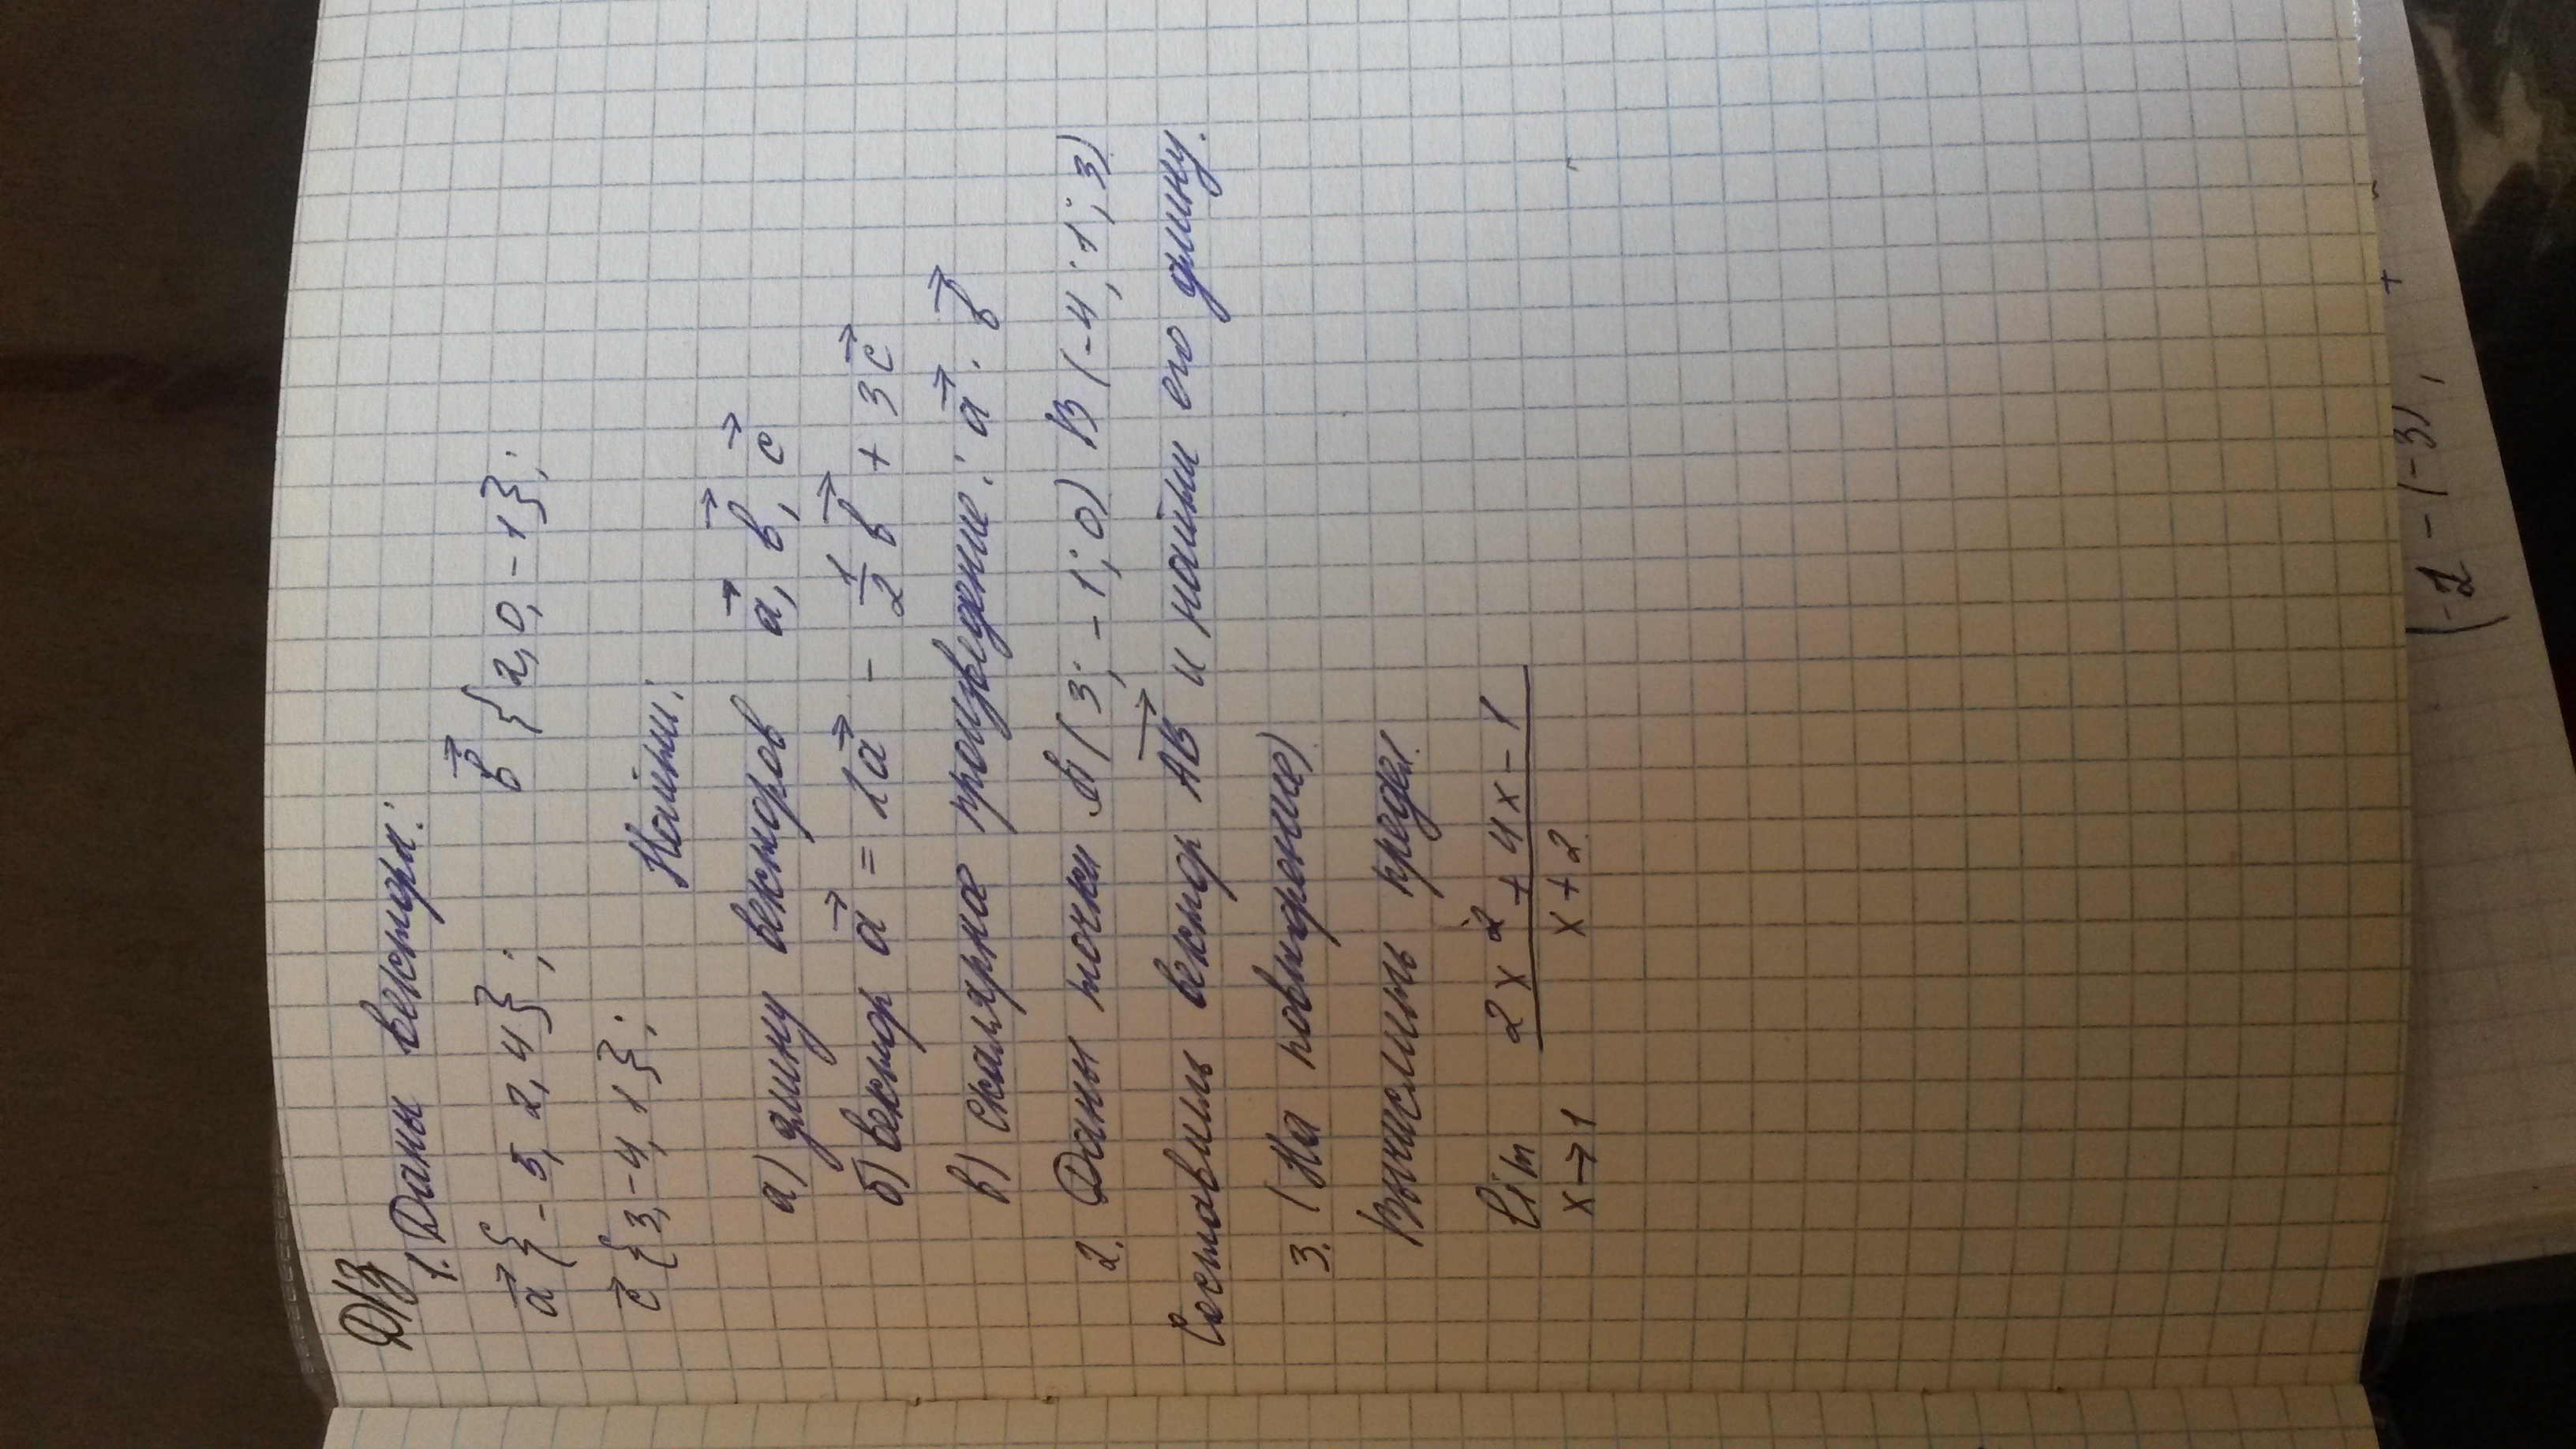 Д/З
1. Даны векторы:
a⃗ {-5, 2, 4}; b⃗ {2, 0, -1};
c⃗ {3, -4, 1};
Найти:
а) длину векторов a⃗, b⃗, c⃗
б) вектор a⃗ = 1a⃗ - 1/2 b⃗ + 3c⃗
в) скалярное произведение: a⃗ · b⃗
2. Даны точки A(3; -1; 0) B(-4; 1; 3)
Составить вектор AB⃗ и найти его длину.
3. (На повторение)
Вычислить предел
lim x→1 (2x² + 4x - 1)/(x + 2)
(-2 - (-3),